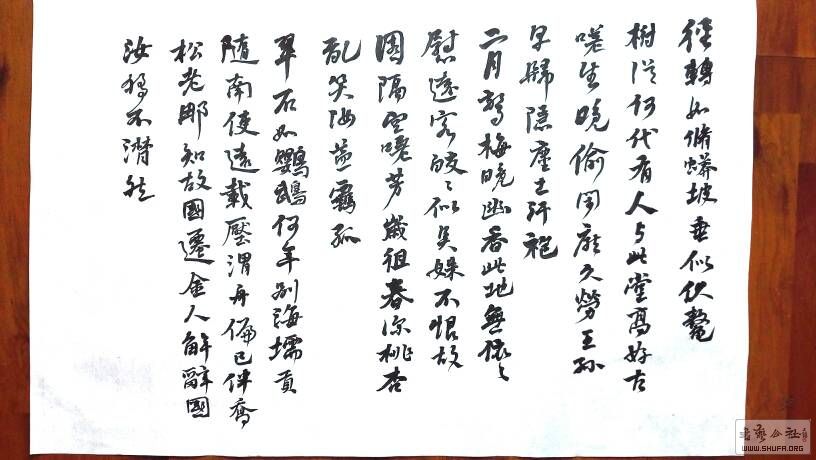 徑轉如脩蟒坡垂似伏鼇
樹從何代有人与此堂高好古
嗟生晚偷閑厭久勞王孫
早歸隱塵土汙袍
二月驚梅晚幽香此地無依々
慰遠客皎々似吳姝不恨故
園隔空嗟芳歲徂春深桃杏
亂笑汝益羈孤
翠石如鸚鵡何年別海壖貢
隨南使遠載壓渭舟偏已伴喬
松老那知故國遷金人解辭國
汝獨不潸然
WWW.SHUFA.ORG